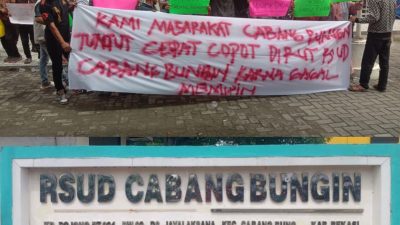 KAMI MASARAKAT CABANG BUNGIN
TUNTUT CEPAT COPOT DIRUT RSUD
CABANG BUNGIN KARNA GAGAL
MEMIMPIN
RSUD CABANGBUNGIN
KEC. CABANG BUNG KAB BEKASI